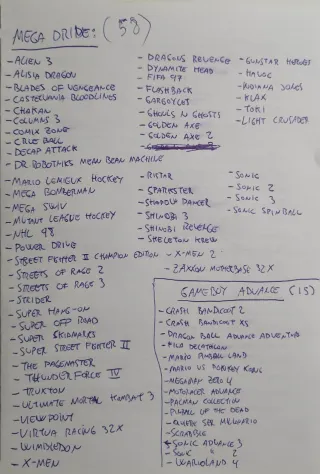 MEGA DRIVE: (58)
- ALIEN 3
- ALISIA DRAGON
- BLADES OF VENGEANCE
- CASTELVANIA BLOODLINES
- CHAKAN
- COLUMNS 3
- COMIX ZONE
- CRUE BALL
- DECAP ATTACK
- DR ROBOTNIKS MEAN BEAN MACHINE
- MARIO LEMIEUX HOCKEY
- MEGA BOMBERMAN
- MEGA SWIV
- MUTANT LEAGUE HOCKEY
- NHL 98
- POWER DRIVE
- STREET FIGHTER II CHAMPION EDITION
- STREETS OF RAGE 2
- STREETS OF RAGE 3
- STRIDER
- SUPER HANG-ON
- SUPER OFF ROAD
- SUPER SKIDMARKS
- SUPER STREET FIGHTER II
- THE PAGEMASTER
- THUNDER FORCE IV
- TRUXTON
- ULTIMATE MORTAL KOMBAT 3
- VIEWPOINT
- VIRTUA RACING 32X
- WIMBLEDON
- X-MEN
- DRAGONS REVENGE
- DYNAMITE HEAD
- FIFA 97
- FLASHBACK
- GARGOYLES
- GHOULS N GHOSTS
- GOLDEN AXE
- GOLDEN AXE 2
- RISTAR
- SPARKSTER
- SHADOW DANCER
- SHINOBI 3
- SHINOBI REVENGE
- SKELETON KREW
- X-MEN 2
- ZAXXON MOTHERBASE 32X
- GUNSTAR HEROES
- INDIANA JONES
- KLAX
- TOKI
- LIGHT CRUSADER
- SONIC
- SONIC 2
- SONIC 3
- SONIC SPINBALL
GAMEBOY ADVANCE (15)
- CRASH BANDICOOT 2
- CRASH BANDICOOT XS
- DRAGON BALL ADVANCE ADVENTURE
- MARIO PINBALL LAND
- MARIO VS DONKEY KONG
- MEGAMAN ZERO 4
- MOTORACER ADVANCE
- PACMAN COLLECTION
- PINBALL OF THE DEAD
- QUIERE SER MILLONARIO
- SCRABBLE
- SONIC ADVANCE 3
- SONIC " 2
- WARIOLAND 4